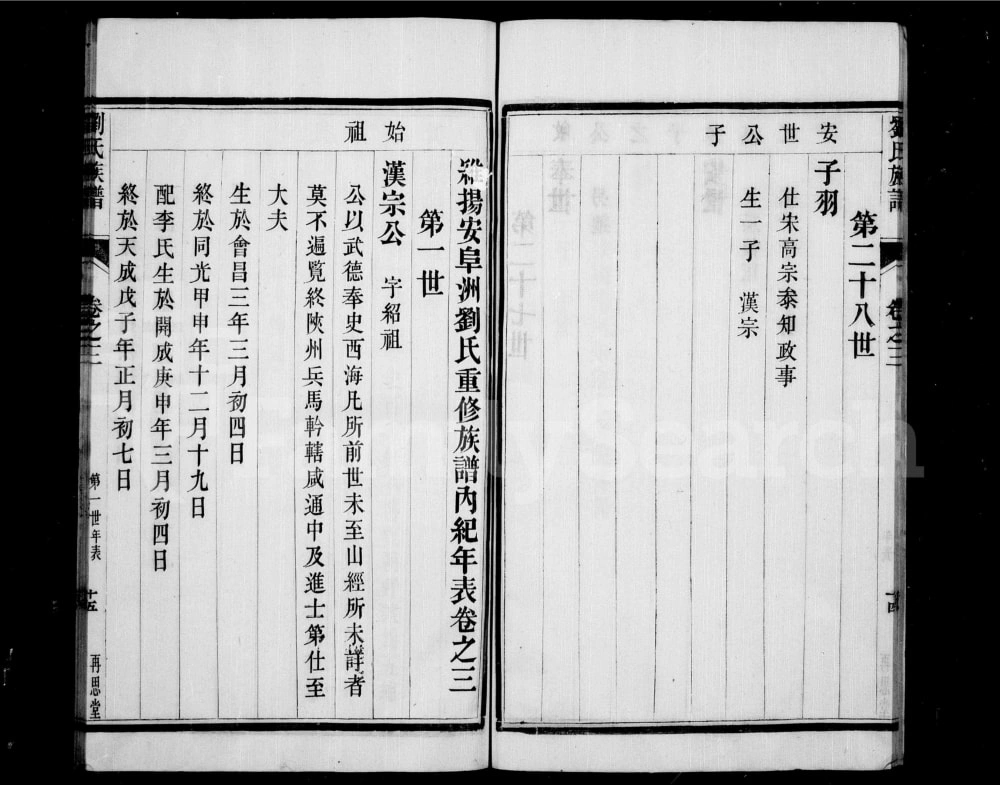 劉氏族譜
卷之三
十四
第二十八世
安世公子
子羽
仕宋高宗叅知政事
公生一子 漢宗
維揚安阜洲劉氏重修族譜內紀年表卷之三
第一世
始祖
漢宗公 字紹祖
公以武德奉史西海凡所前世未至山經所未詳者
莫不遍覽終陜州兵馬幹轄咸通中及進士第仕至
大夫
生於會昌三年三月初四日
終於同光甲申年十二月十九日
配李氏生於開成庚申年三月初四日
終於天成戊子年正月初七日
劉氏族譜
卷之三
第一世年表
十五
再思堂